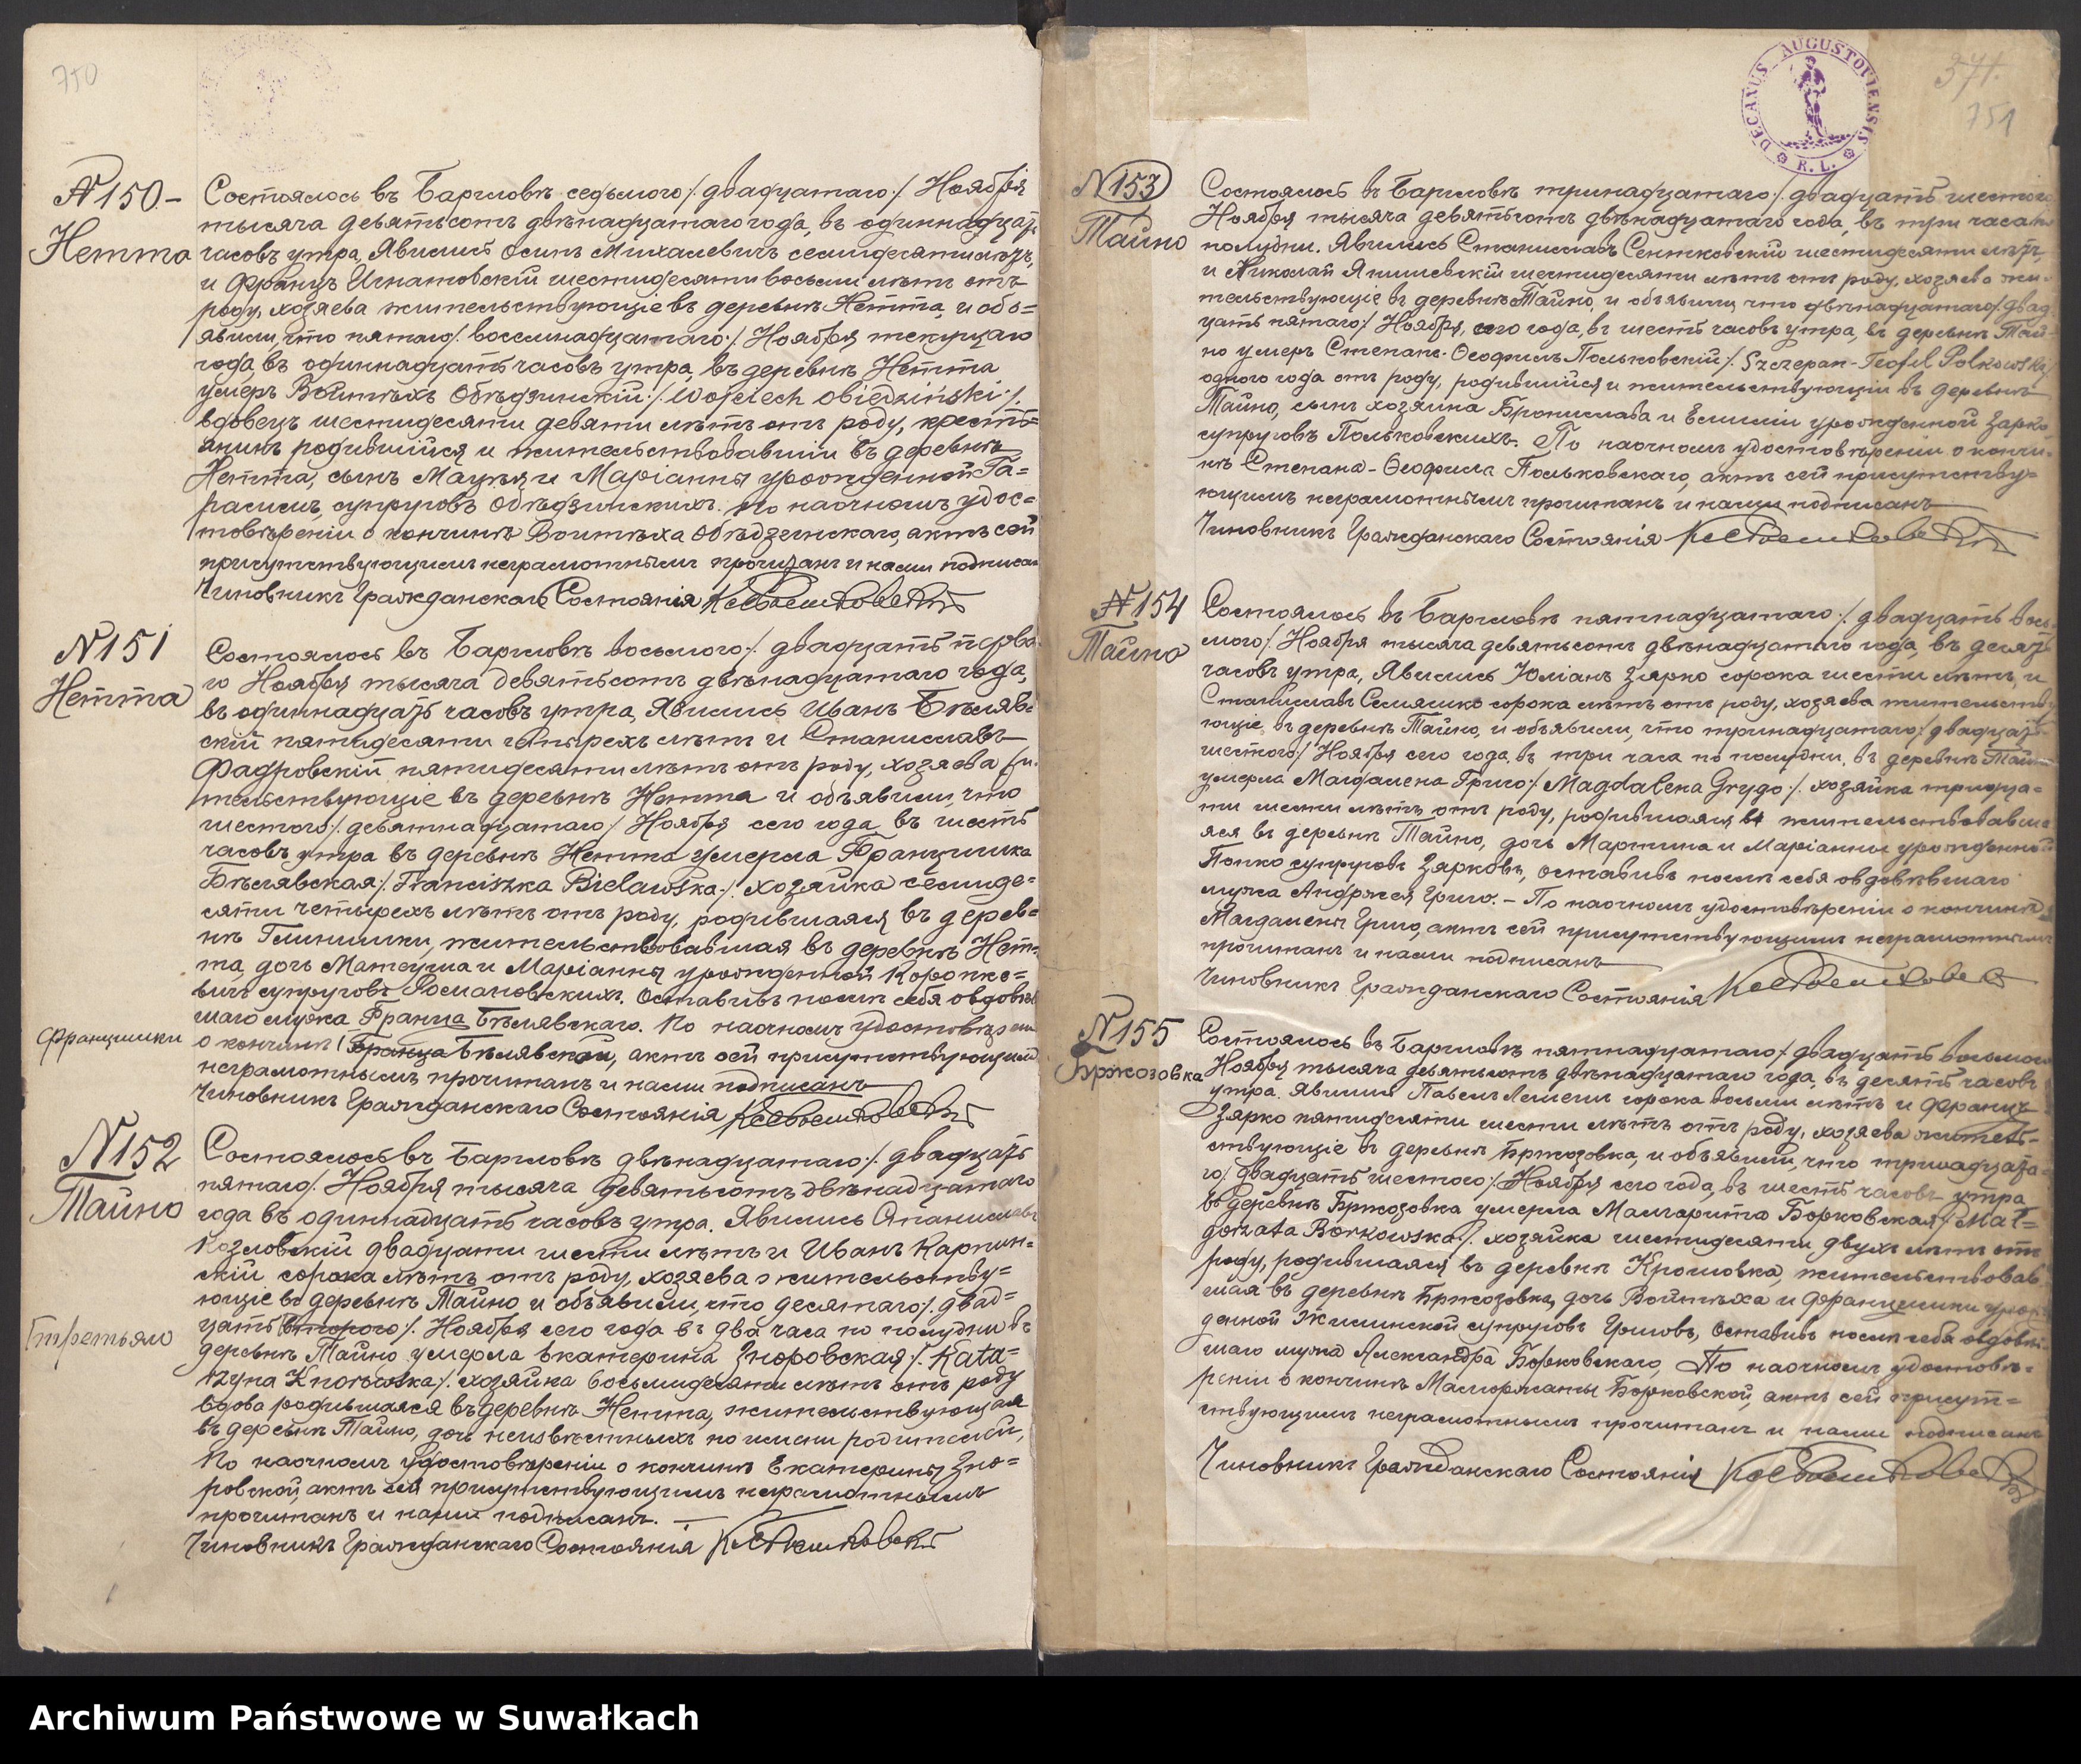 750
№150 –
Нетта
Состоялось въ Баргловѣ седьмого /. двадцатаго ./ Ноября
тысяча девятьсотъ двѣнадцатаго года, въ одиннадцать
часовъ утра, Явились Осипъ Михалевичъ семидесяти лѣтъ,
и Францъ Игнатовскій шестидесяти восьми лѣтъ отъ
роду, хозяева жительствующіе въ деревнѣ Нетта, и объ=
явили, что пятаго /. восемнадцатаго ./ Ноября текущаго
года, въ одиннадцать часовъ утра, въ деревнѣ Нетта
умеръ Войтѣхъ Обѣдзинскій ./. Wojciech Obiedziński ./.
вдовецъ шестидесяти девяти лѣтъ отъ роду, кресть=
янинъ родившійся и жительствовавшій въ деревнѣ
Нетта, сынъ Мацѣя и Маріанны урожденной Га=
расимъ, супруговъ Обѣдзинскихъ. По наочномъ удос=
товѣреніи о кончинѣ Войтѣха Обѣдзинскаго, актъ сей
присутствующимъ неграмотнымъ прочитанъ и нами подписанъ
Чиновникъ Гражданскаго Состоянія
№151
Нетта
Состоялось въ Баргловѣ восьмого /. двадцать перва
го Ноября тысяча девятьсотъ двѣнадцатаго года,
въ одиннадцать часовъ утра, Явились Иванъ Бѣляв=
скій пятидесяти четырехъ лѣтъ и Станиславъ
Фадровскій пятидесяти лѣтъ отъ роду, хозяева жи
тельствующіе въ деревнѣ Нетта и объявили, что
шестого /. девятнадцатаго ./ Ноября сего года въ шесть
часовъ утра въ деревнѣ Нетта умерла Францишка
Бѣлявская ./. Franciszka Bielawska ./. хозяйка семиде=
сяти четырехъ лѣтъ отъ роду, родившаяся въ дерев=
нѣ Глинишки, жительствовавшая въ деревнѣ Нет=
та, дочь Матеуша и Маріанны урожденной Коронке=
вичъ супруговъ Росмановскихъ. Оставивъ послѣ себя овдовѣв
шаго мужа Франца Бѣлявскаго. По наочномъ удостовѣрении
Францишки
о кончинѣ Франца Бѣлявской, актъ сей присутствующимъ
неграмотнымъ прочитанъ и нами подписанъ
Чиновникъ Гражданскаго Состоянія
№152
Тайно
Состоялось въ Баргловѣ двѣнадцатаго /. двадцать
пятаго /. Ноября тысяча девятьсотъ двѣнадцатаго
года въ одиннадцать часовъ утра. Явились Станиславъ
Козловскій двадцати шести лѣтъ и Иванъ Карпин=
скій сорока лѣтъ отъ роду, хозяева жительству=
ющіе въ деревнѣ Тайно и объявили, что десятаго /. двад=
третьяго
цать второго /. Ноября сего года въ два часа по полудни въ
деревнѣ Тайно умерла Екатерина Зноровская ./. Kata=
rzyna Knorowska ./. хозяйка восьмидесяти лѣтъ отъ роду
вдова родившаяся въ деревнѣ Нетта, жительствующая
въ деревнѣ Тайно, дочь неизвѣстныхъ по имени родителей,
По наочномъ удостовѣреніи о кончинѣ Екатерины Зно=
ровской, актъ сей присутствующимъ неграмотнымъ
прочитанъ и нами подписанъ. —
Чиновникъ Гражданскаго Состоянія
DECANUS AUGUSTOVIENSIS R. L.
371.
751
№153
Тайно
Состоялось въ Баргловѣ тринадцатаго /. двадцать шестого
Ноября тысяча девятьсотъ двѣнадцатаго года, въ три часа по
полудни. Явились Станиславъ Сентковскій шестидесяти лѣтъ,
и Николай Янишевскій шестидесяти лѣтъ отъ роду, хозяева жи=
тельствующіе въ деревнѣ Тайно, и объявили, что двѣнадцатаго /. двад
цать пятаго ./ Ноября, сего года, въ шесть часовъ утра, въ деревнѣ Тай
но умеръ Степанъ-Ѳеофилъ Польковскій ./. Szczepan-Teofil Polkowski
одного года отъ роду, родившійся и жительствующій въ деревнѣ
Тайно, сынъ хозяина Бронислава и Емиліи урожденной Зарко
супруговъ Польковскихъ. По наочномъ удостовѣреніи о кончи=
нѣ Степана-Ѳеофила Польковскаго, актъ сей присутству=
ющимъ неграмотнымъ прочитанъ и нами подписанъ
Чиновникъ Гражданскаго Состоянія
№154
Тайно
Состоялось въ Баргловѣ пятнадцатаго /. двадцать вось
мого ./ Ноября тысяча девятьсотъ двѣнадцатаго года, въ десять
часовъ утра, Явились Юліанъ Зярко сорока шести лѣтъ, и
Станиславъ Семяшко сорока лѣтъ отъ роду, хозяева жительству
ющіе въ деревнѣ Тайно, и объявили, что тринадцатаго /. двадцать
шестого ./ Ноября сего года, въ три часа по полудни, въ деревнѣ Тайно
умерла Магдалена Григо ./. Magdalena Grygo ./. хозяйка тридца=
ти шести лѣтъ отъ роду, родившаяся и жительствовавша
яся въ деревнѣ Тайно, дочь Мартина и Маріанны урожденной
Попко супруговъ Зярковъ, оставивъ послѣ себя овдовѣвшаго
мужа Андржея Григо. – По наочномъ удостовѣреніи о кончинѣ
Магдалены Григо, актъ сей присутствующимъ неграмотнымъ
прочитанъ и нами подписанъ
Чиновникъ Гражданскаго Состоянія
№155
Бржозовка
Состоялось въ Баргловѣ пятнадцатаго /. двадцать восьмого
Ноября тысяча девятьсотъ двѣнадцатаго года, въ десять часовъ
утра. Явились Павелъ сорока восьми лѣтъ и Францъ
Зярко пятидесяти шести лѣтъ отъ роду, хозяева житель=
ствующіе въ деревнѣ Бржозовка, и объявили, что тринадцата=
го /. двадцать шестого ./. Ноября сего года, въ шесть часовъ утра
въ деревнѣ Бржозовка умерла Малгоржата Борковская ./. Mał=
gorzata Borkowska ./. хозяйка шестидесяти двухъ лѣтъ отъ
роду, родившаяся въ деревнѣ Крошовка, жительствовав
шая въ деревнѣ Бржозовка, дочь Войтѣха и Францишки урож
денной Жилинской супруговъ Григовъ, Оставивъ послѣ себя овдовѣв
шаго мужа Александра Борковскаго, По наочномъ удостовѣ=
реніи о кончинѣ Малгоржаты Борковской, актъ сей присут=
ствующимъ неграмотнымъ прочитанъ и нами подписанъ
Чиновникъ Гражданскаго Состоянія
Archiwum Państwowe w Suwałkach